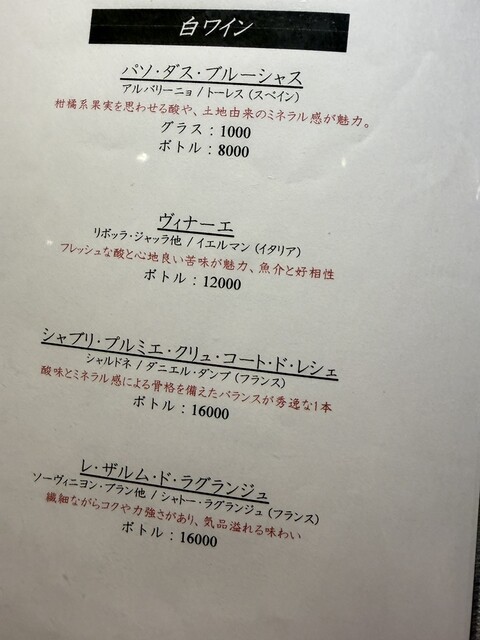 白ワイン
パソ・ダス・ブルーシャス
アルバリーニョ / トーレス (スペイン)
柑橘系果実を思わせる酸や、土地由来のミネラル感が魅力。
グラス：1000
ボトル：8000
ヴィナーエ
リボッラ・ジャッラ他 / イエルマン (イタリア)
フレッシュな酸と心地良い苦味が魅力、魚介と好相性
ボトル：12000
シャブリ・プルミエ・クリュ・コート・ド・レシェ
シャルドネ / ダニエル・ダンプ (フランス)
酸味とミネラル感による骨格を備えたバランスが秀逸な1本
ボトル：16000
レ・ザルム・ド・ラグランジュ
ソーヴィニヨン・ブラン他 / シャトー・ラグランジュ (フランス)
繊細ながらコクや力強さがあり、気品溢れる味わい
ボトル：16000